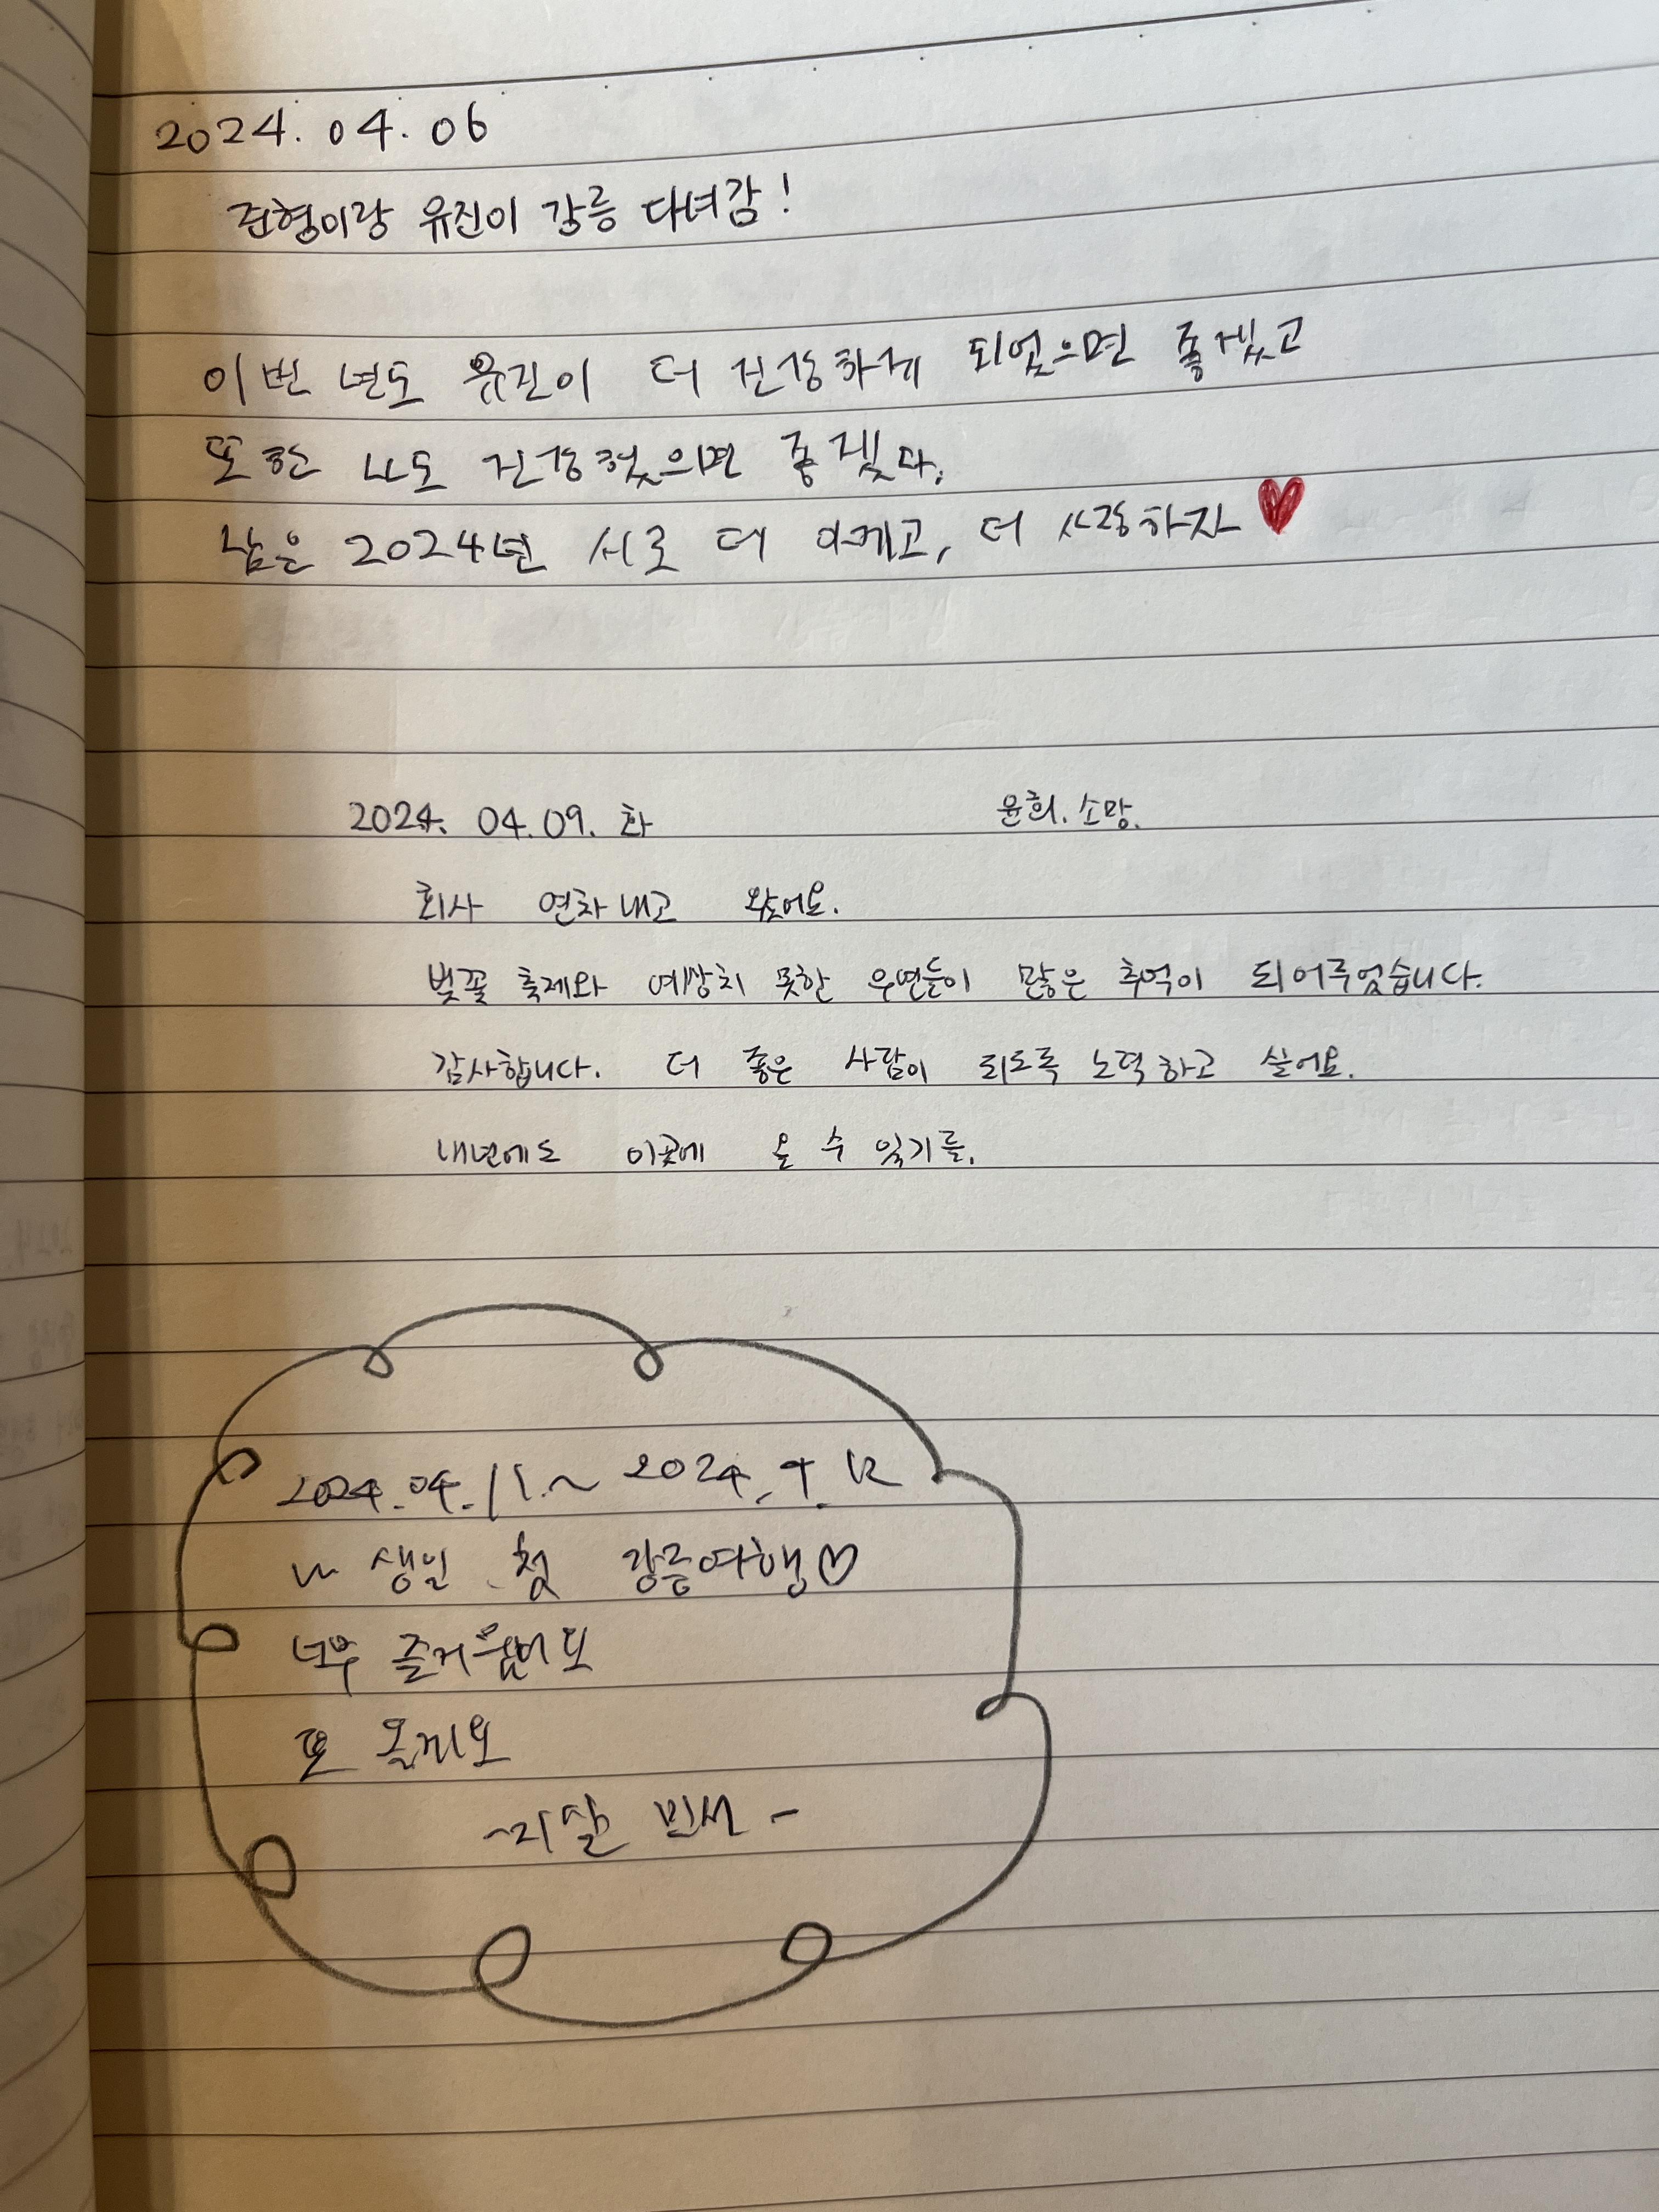 2024. 04. 06
준형이랑 유진이 강릉 다녀감!
이번 년도 유진이 더 건강하게 되었으면 좋겠고
또한 나도 건강했으면 좋겠다.
남은 2024년 서로 더 아끼고, 더 사랑하자♥
2024. 04. 09. 화 윤희. 소망.
회사 연차내고 왔어요.
벚꽃 축제와 예상치 못한 우연들이 많은 추억이 되어주었습니다.
감사합니다. 더 좋은 사람이 되도록 노력하고 싶어요.
내년에도 이곳에 올 수 있기를.
2024.04.11.~ 2024.4.12
생일 첫 강릉여행♡
너무
또 올게요
민서 -